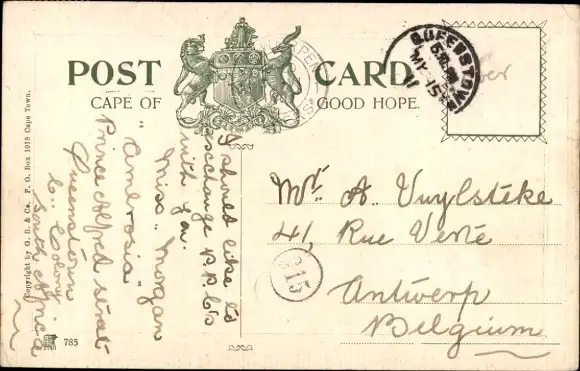 POST CARD
CAPE OF GOOD HOPE.
QUEENSTOWN
MY 15
11
I should like to
exchange P.P.C's
with you.
Miss. Morgan
"Ambrosia"
Prince Alfred street
Queenstown
C. Colony
South Africa
Mr. A. Vuylsteke
41, Rue Verte
Antwerp
Belgium
315
Copyright by G. B. & Co. P. O. Box 1018 Cape Town.
785